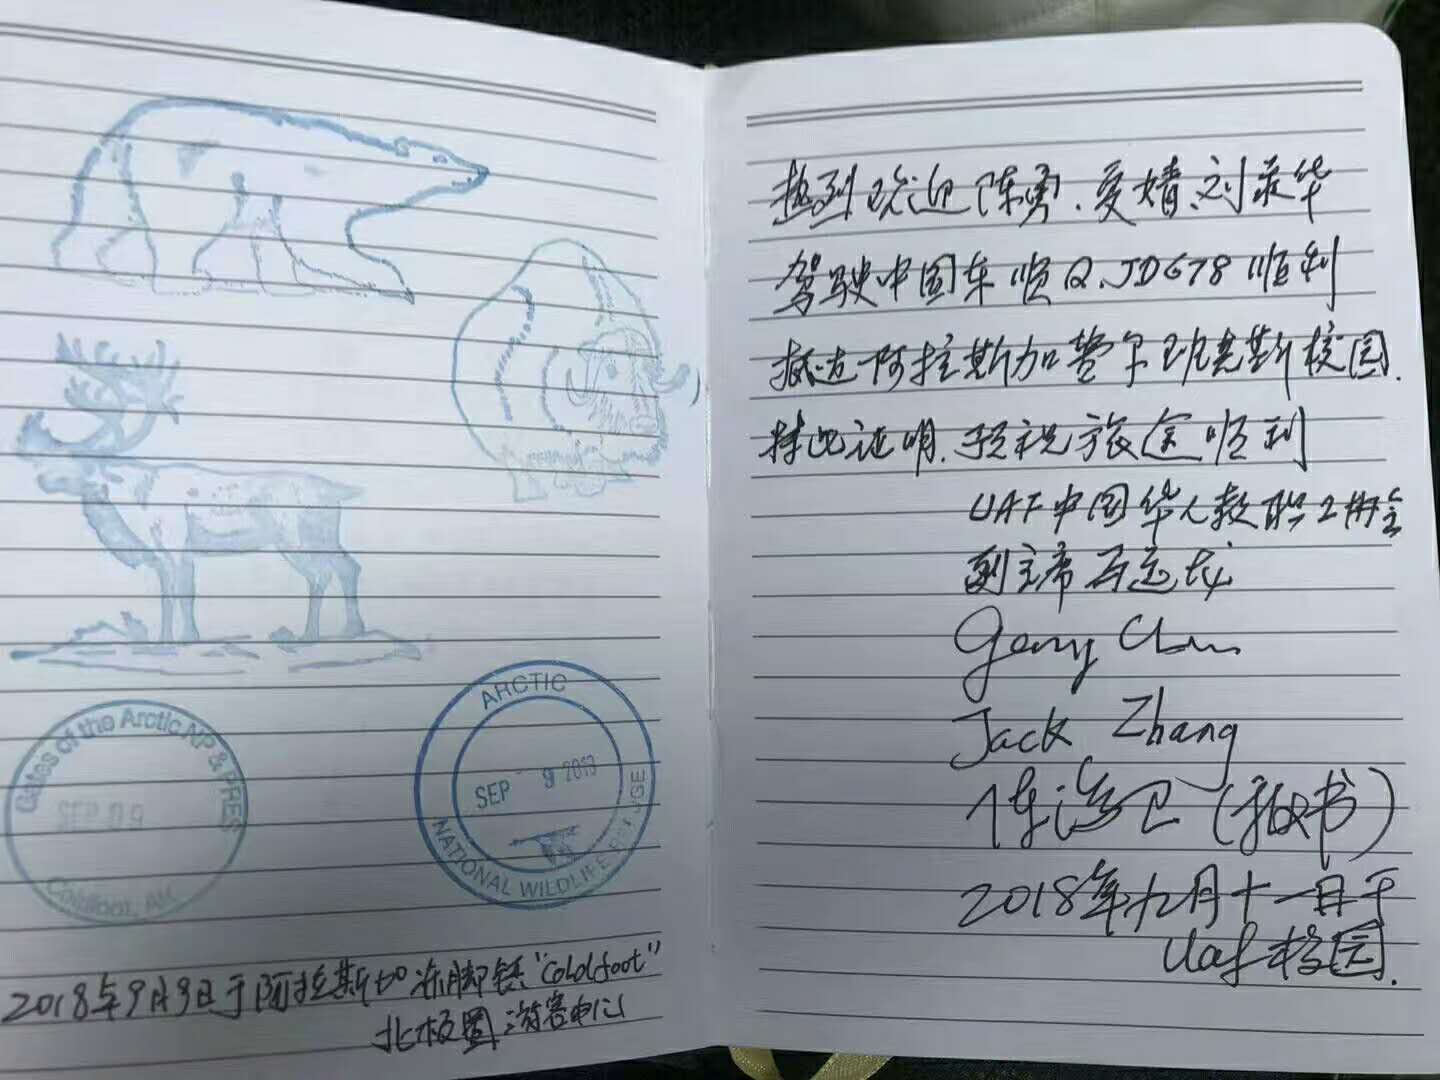 Gates of the Arctic NP & PRES
SEP 09
Coldfoot, AK
ARCTIC
SEP 9 2018
NATIONAL WILDLIFE REFUGE
2018年9月9日于阿拉斯加冻脚镇"Coldfoot"
北极圈游客中心
热烈欢迎陈勇、爱婧、刘美华
驾驶中国车 Q.JD678 顺利
抵达阿拉斯加费尔班克斯校园.
特此证明.预祝旅途顺利
UAF中国华人教职工协会
副主席
Jack Zhang
(秘书)
2018年九月十一日于
Uaf校园.